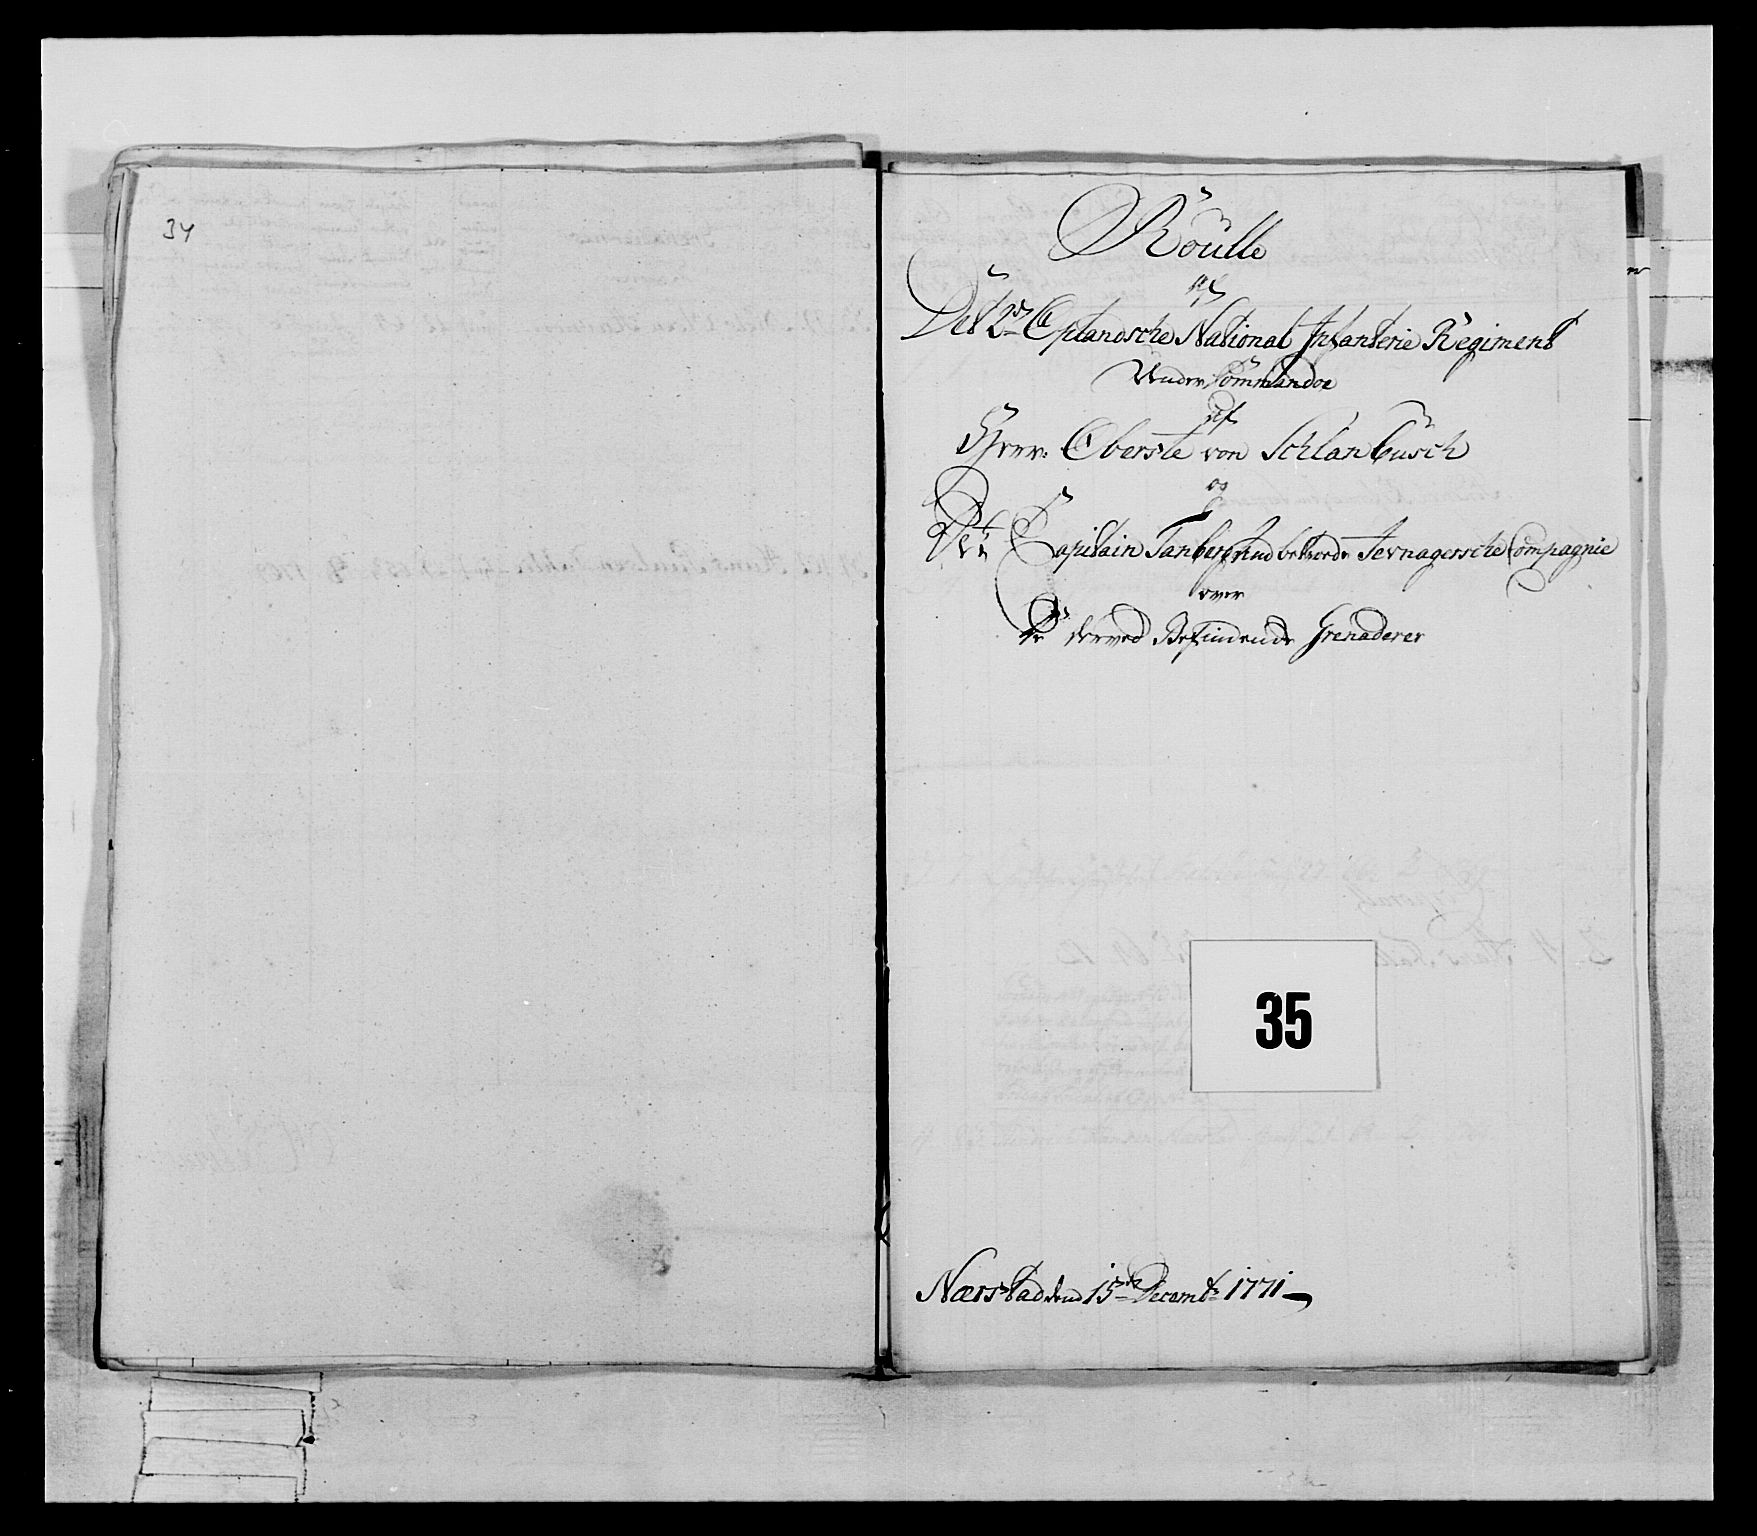 34
Roulle
af
Det 2det Oplandsche National Infanterie Regiment
Under Commandoe
af
Herr Oberste von Schlanbusch
og
Det Capitain Tanberg anbetroede Jevnagersche Compagnie
over
de derved Befindende Grenaderer
35
Nærstad den 15de Decembr 1771